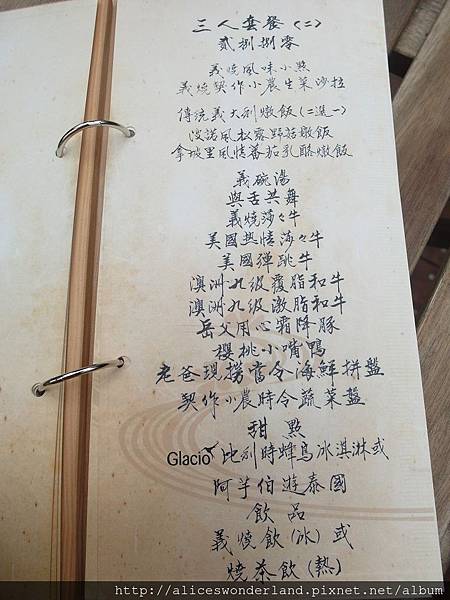 三人套餐(二)
貳捌捌零
義燒風味小點
義燒契作小農生菜沙拉
傳統義大利燉飯(二選一)
波諾風松露野菇燉飯
拿坡里風情番茄乳酪燉飯
義碗湯
與舌共舞
義燒莎々牛
美國热情莎々牛
美國彈跳牛
澳洲九級覆脂和牛
澳洲九級激脂和牛
岳父用心霜降豚
櫻桃小嘴鴨
老爸現撈當令海鮮拼盤
契作小農時令蔬菜盤
甜點
Glacio 比利時蜂鳥冰淇淋或
阿芋伯遊泰國
飲品
義燒飲(冰)或
燒茶飲(熱)
http://aliceswonderland.pixnet.net/album